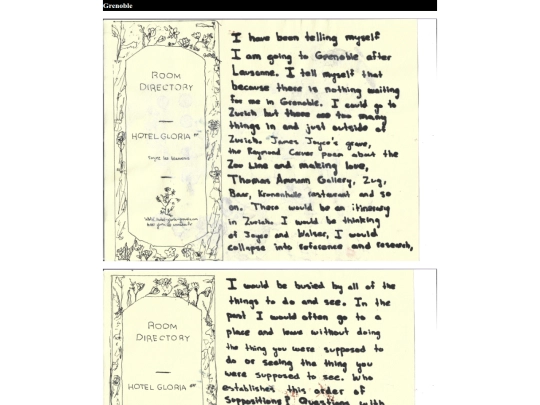 Grenoble
ROOM
DIRECTORY
HOTEL GLORIA
I have been telling myself
I am going to Grenoble after
Lausanne. I tell myself that
because there is nothing waiting
for me in Grenoble. I could go to
Zurich but there are too many
things in and just outside of
Zurich. James Joyce's grave,
the Raymond Carver poem about the
Zoo Line and making love,
Thomas Ammann Gallery, Zug,
Baur, Kronenhalle restaurant and so
on. There would be an itinerary
in Zurich. I would be thinking
of Joyce and Walser, I would
collapse into reference and research,
ROOM
DIRECTORY
HOTEL GLORIA
I would be busied by all of the
things to do and see. In the
past I would often go to a
place and leave without doing
the thing you were supposed to
do or seeing the thing you
were supposed to see. Who
establishes this order of
suppositions? Questions with